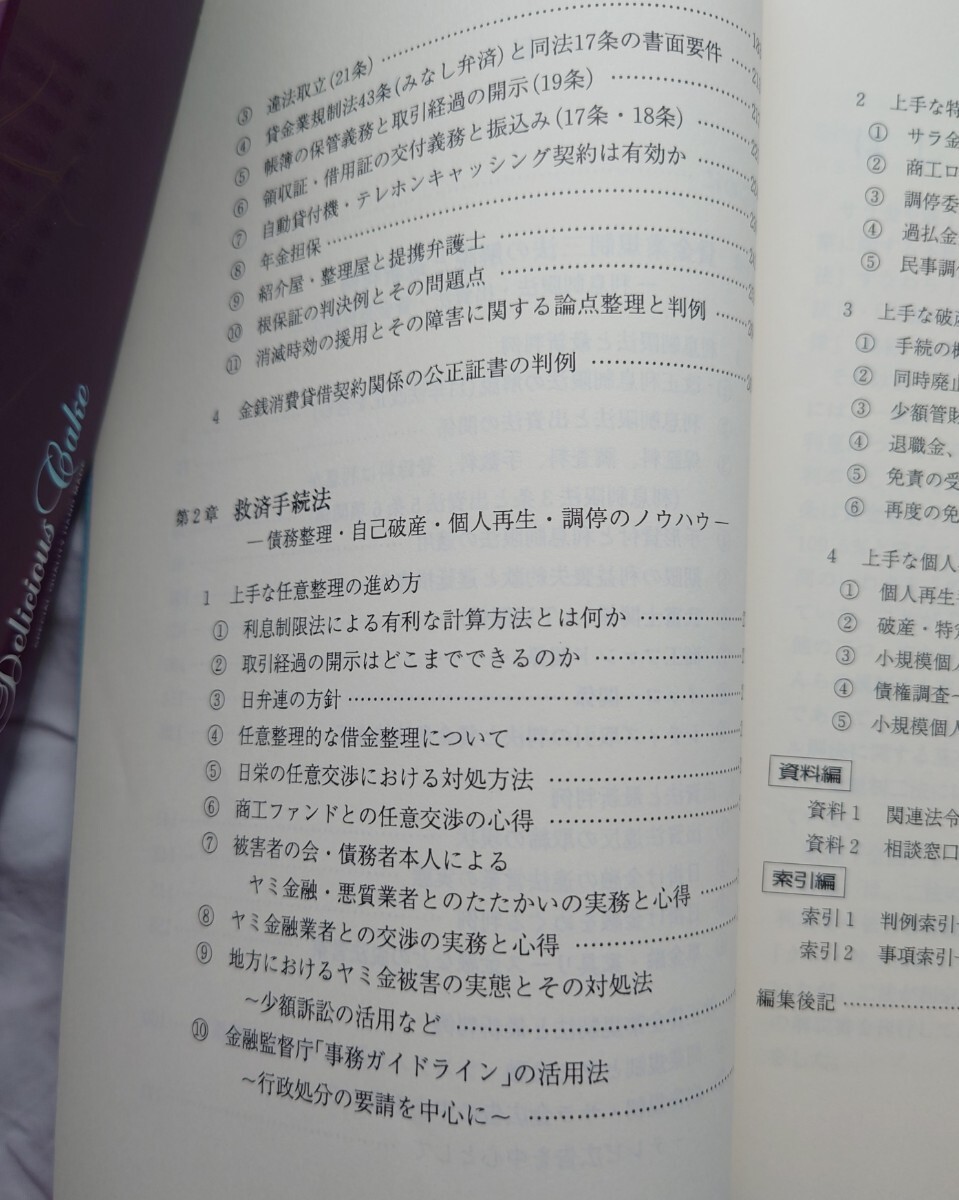 ③ 違法取立(21条)
④ 貸金業規制法43条(みなし弁済)と同法17条の書面要件
⑤ 帳簿の保管義務と取引経過の開示(19条)
⑥ 領収証・借用証の交付義務と振込み(17条・18条)
⑦ 自動貸付機・テレホンキャッシング契約は有効か
⑧ 年金担保
⑨ 紹介屋・整理屋と提携弁護士
⑩ 根保証の判決例とその問題点
⑪ 消滅時効の援用とその障害に関する論点整理と判例
4 金銭消費貸借契約関係の公正証書の判例
第2章 救済手続法
―債務整理・自己破産・個人再生・調停のノウハウ―
1 上手な任意整理の進め方
① 利息制限法による有利な計算方法とは何か
② 取引経過の開示はどこまでできるのか
③ 日弁連の方針
④ 任意整理的な借金整理について
⑤ 日栄の任意交渉における対処方法
⑥ 商工ファンドとの任意交渉の心得
⑦ 被害者の会・債務者本人による
ヤミ金融・悪質業者とのたたかいの実務と心得
⑧ ヤミ金融業者との交渉の実務と心得
⑨ 地方におけるヤミ金被害の実態とその対処法
～少額訴訟の活用など
⑩ 金融監督庁「事務ガイドライン」の活用法
～行政処分の要請を中心に～
2 上手な特
① サラ金
② 商工ロ
③ 調停委
④ 過払金
⑤ 民事調
3 上手な破産
① 手続の概
② 同時廃止
③ 少額管財
④ 退職金、
⑤ 免責の受
⑥ 再度の免
4 上手な個人
① 個人再生
② 破産・特
③ 小規模個人
④ 債権調査
⑤ 小規模個人
資料編
資料1 関連法令
資料2 相談窓口
索引編
索引1 判例索引
索引2 事項索引
編集後記
Delicious Cake